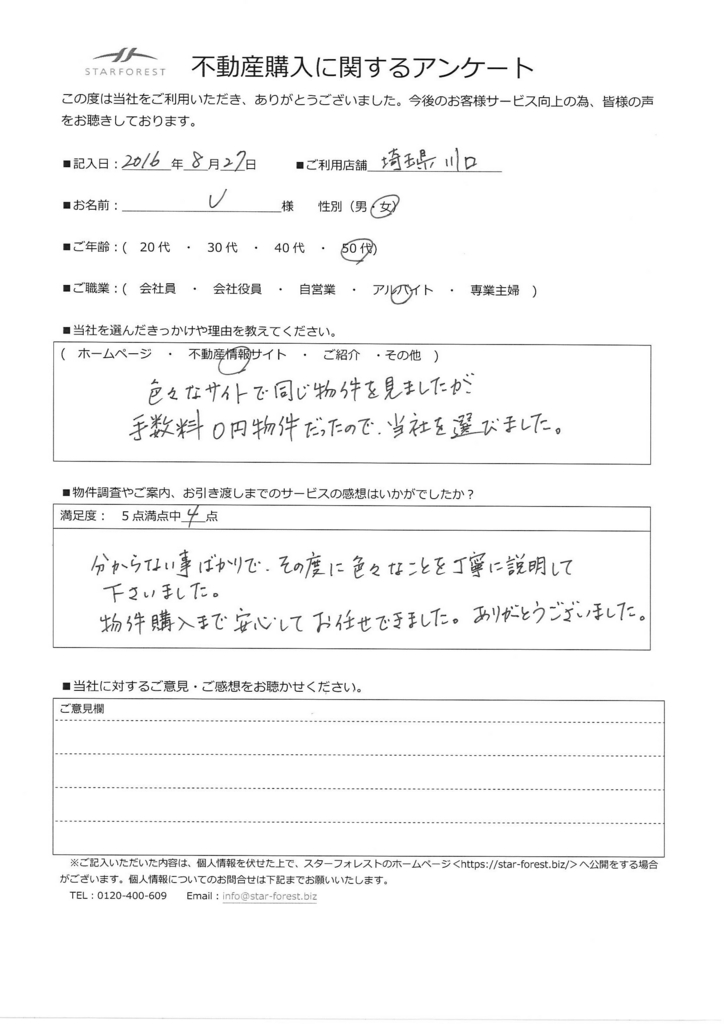 STARFOREST
不動産購入に関するアンケート
この度は当社をご利用いただき、ありがとうございました。今後のお客様サービス向上の為、皆様の声
をお聴きしております。
■記入日：2016年8月27日 ■ご利用店舗 埼玉県川口
■お名前： U 様 性別（男・女）
■ご年齢：( 20代 ・ 30代 ・ 40代 ・ 50代)
■ご職業：( 会社員 ・ 会社役員 ・ 自営業 ・ アルバイト ・ 専業主婦 )
■当社を選んだきっかけや理由を教えてください。
( ホームページ ・ 不動産情報サイト ・ ご紹介 ・その他 )
色々なサイトで同じ物件を見ましたが
手数料0円物件だったので、当社を選びました。
■物件調査やご案内、お引き渡しまでのサービスの感想はいかがでしたか？
満足度： 5点満点中4点
分からない事ばかりで、その度に色々なことを丁寧に説明して
下さいました。
物件購入まで安心してお任せできました。ありがとうございました。
■当社に対するご意見・ご感想をお聴かせください。
ご意見欄
※ご記入いただいた内容は、個人情報を伏せた上で、スターフォレストのホームページ<https://star-forest.biz/>へ公開をする場合
がございます。個人情報についてのお問合せは下記までお願いいたします。
TEL：0120-400-609 Email：info@star-forest.biz